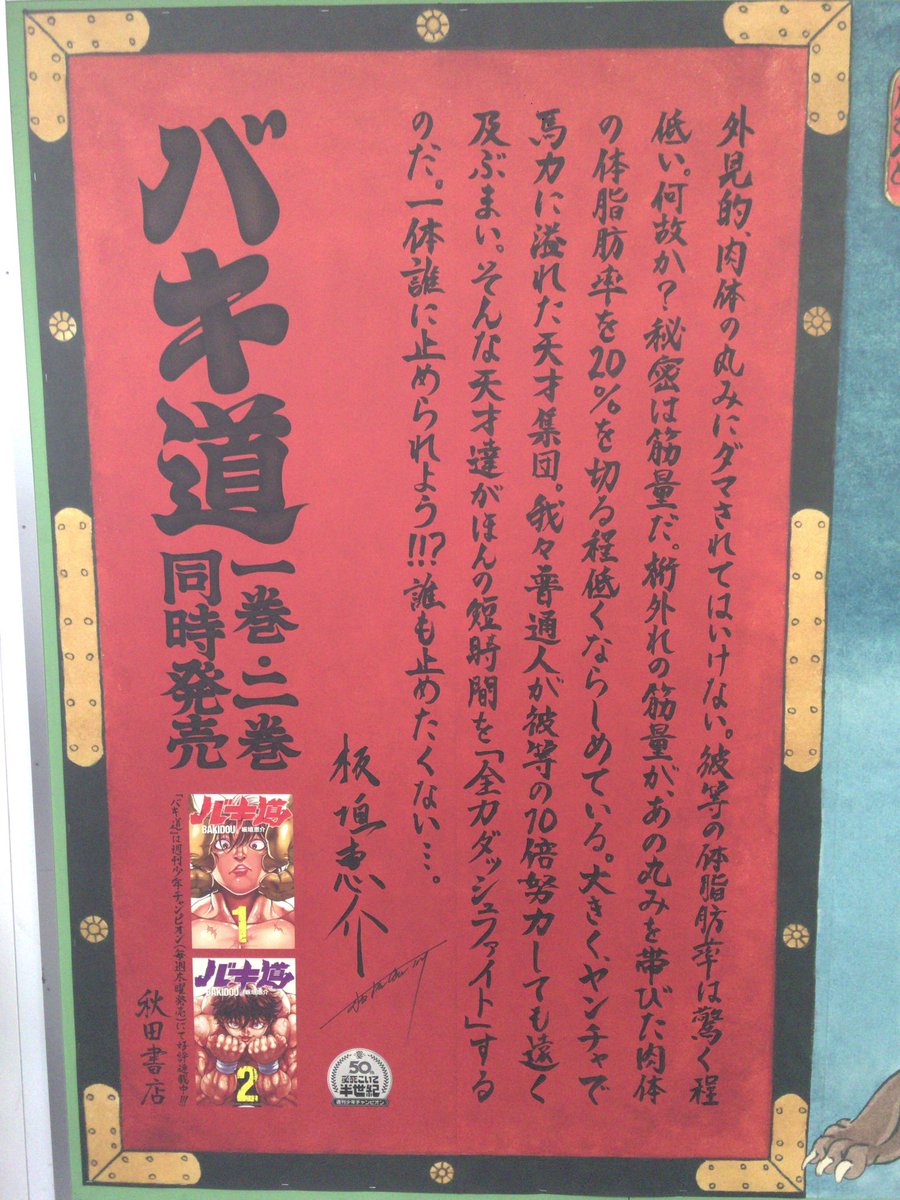 外見的、肉体の丸みにダマされてはいけない。彼等の体脂肪率は驚く程
低い。何故か？秘密は筋量だ。桁外れの筋量が、あの丸みを帯びた肉体
の体脂肪率を20％を切る程低くならしめている。大きく、ヤンチャで
馬力に溢れた天才集団。我々普通人が彼等の10倍努力しても遠く
及ぶまい。そんな天才達がほんの短時間を「全力ダッシュファイト」する
のだ。一体誰に止められよう!!?誰も止めたくない…。
板垣恵介
バキ道
一巻・二巻
同時発売
バキ道
BAKIDOU 板垣恵介
1
バキ道
BAKIDOU 板垣恵介
2
『バキ道』は週刊少年チャンピオン(毎週木曜発売)にて好評連載中!!!
秋田書店
50th
半世紀
週刊少年チャンピオン